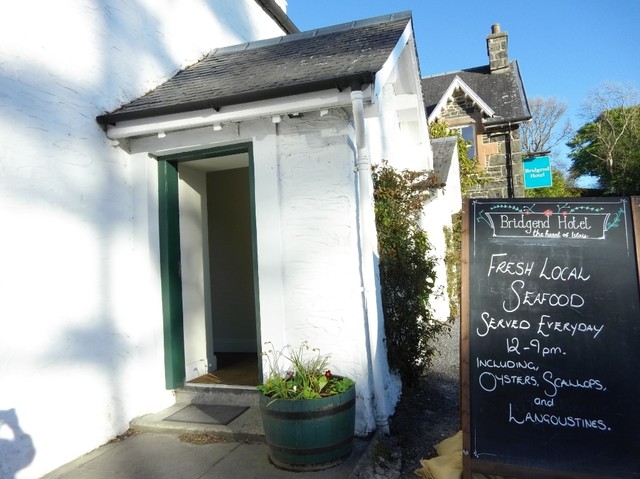 Bridgend
Hotel
Bridgend Hotel
the heart of Islay
FRESH LOCAL
SEAFOOD
SERVED EVERYDAY
12-9pm.
INCLUDING,
OYSTERS, SCALLOPS,
and
LANGOUSTINES.